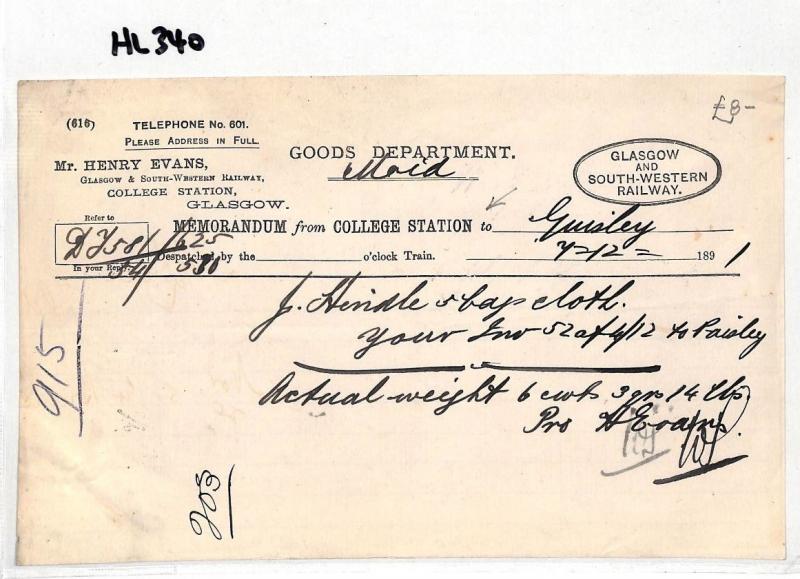 HL340
(616) TELEPHONE No. 601.
PLEASE ADDRESS IN FULL.
£8-
Mr. HENRY EVANS,
GLASGOW & SOUTH-WESTERN RAILWAY,
COLLEGE STATION,
GLASGOW.
GOODS DEPARTMENT.
GLASGOW
AND
SOUTH-WESTERN
RAILWAY.
Refer to
MEMORANDUM from COLLEGE STATION to Guisley
In your Reply.
Despatched by the o'clock Train. 7-12- 1891
J. Hindle 5 bags cloth.
your Inv 52 of 4/12 to Paisley
Actual weight 6 cwts 3 qrs 14 lbs.
Pro H Evans.
915
203